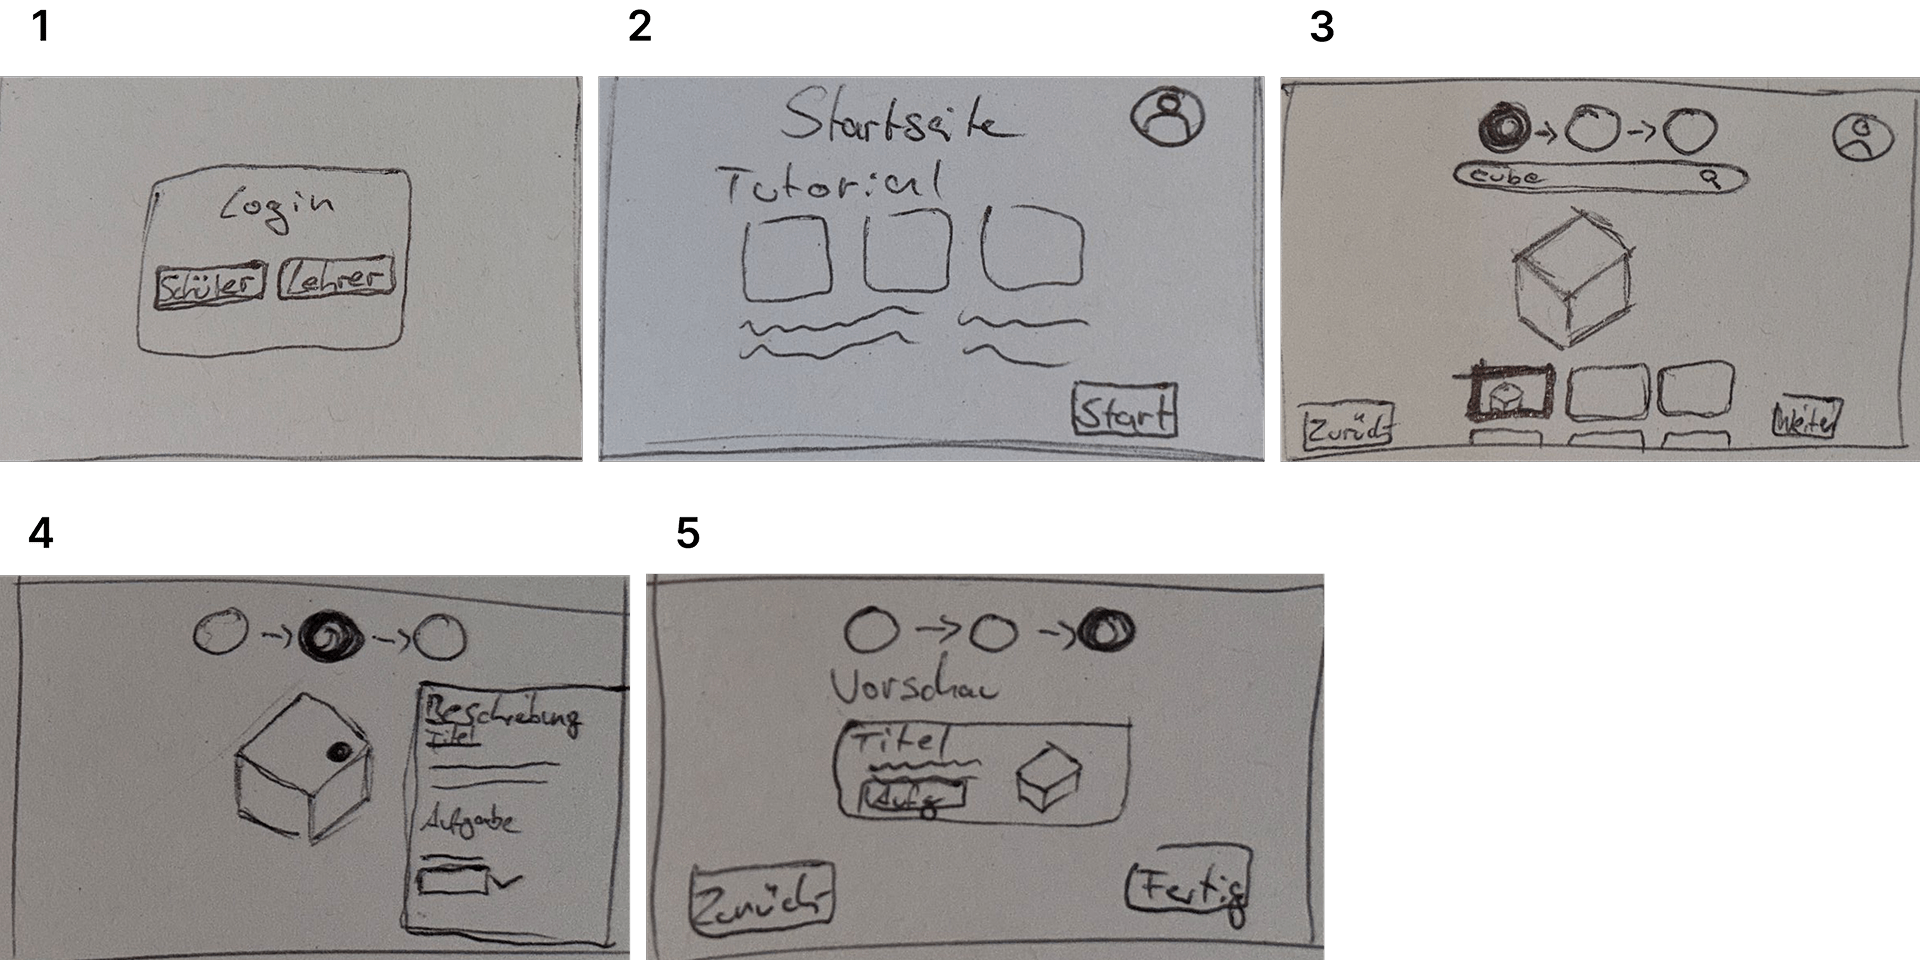 1
Login
Schüler Lehrer
2
Startseite
Tutorial
Start
3
cube
Zurück
Weiter
4
Beschreibung
Titel
Aufgabe
5
Vorschau
Titel
Aufg
Zurück
Fertig